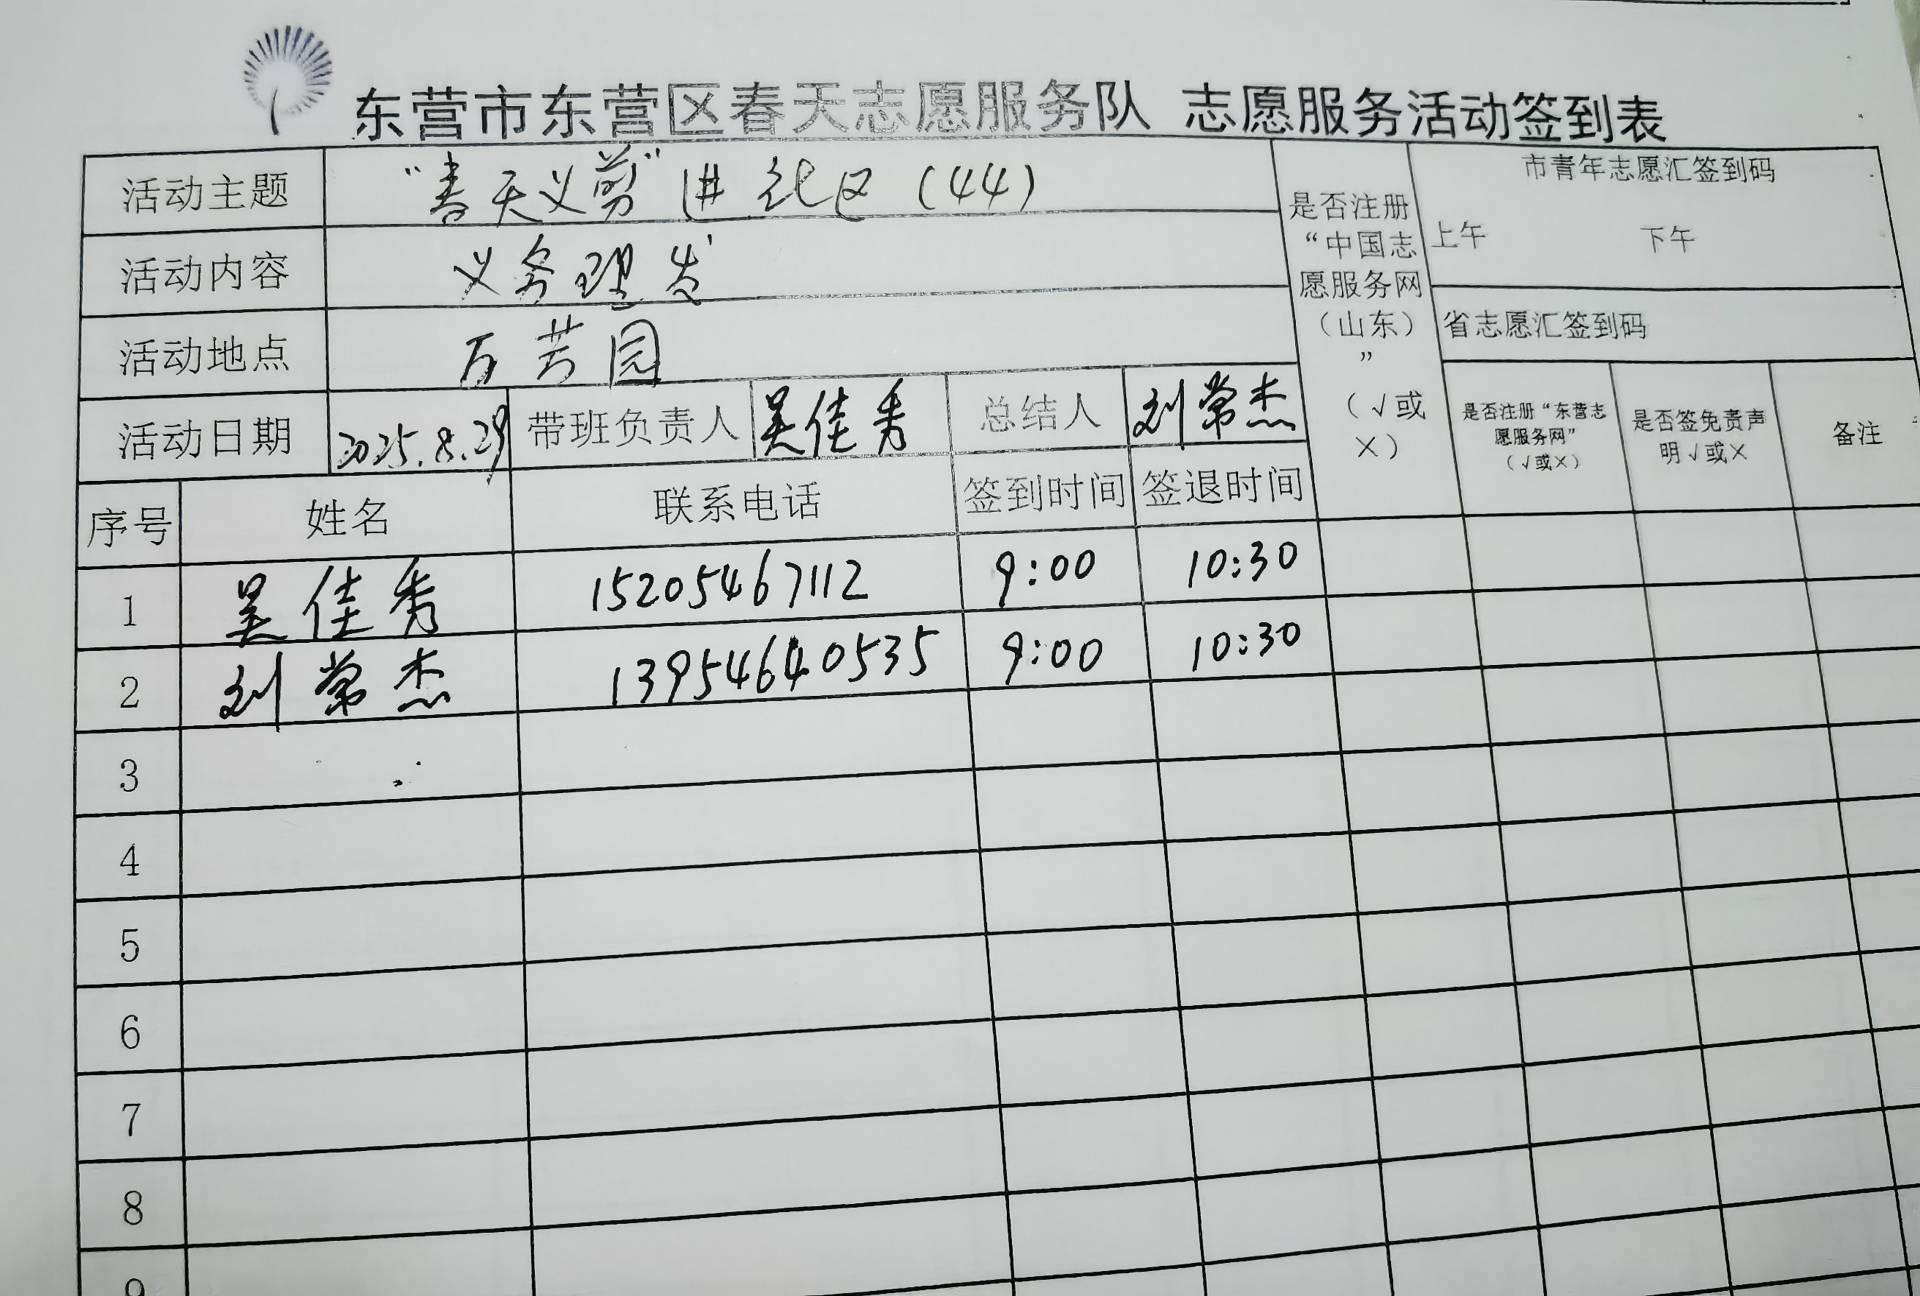 东营市东营区春天志愿服务队 志愿服务活动签到表
活动主题 “春天义剪”进社区（44）
活动内容 义务理发
活动地点 万芳园
活动日期 2025.8.29 带班负责人 吴佳秀 总结人 刘常杰
是否注册
“中国志
愿服务网
（山东）
”
（√或
×）
市青年志愿汇签到码
上午 下午
省志愿汇签到码
是否注册“东营志
愿服务网”
（√或×）
是否签免责声
明√或×
备注
序号 姓名 联系电话 签到时间 签退时间
1 吴佳秀 15205467112 9:00 10:30
2 刘常杰 13954640535 9:00 10:30
3
4
5
6
7
8
9